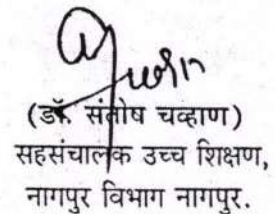 (डॉ. संतोष चव्हाण)
सहसंचालक उच्च शिक्षण,
नागपुर विभाग नागपुर.